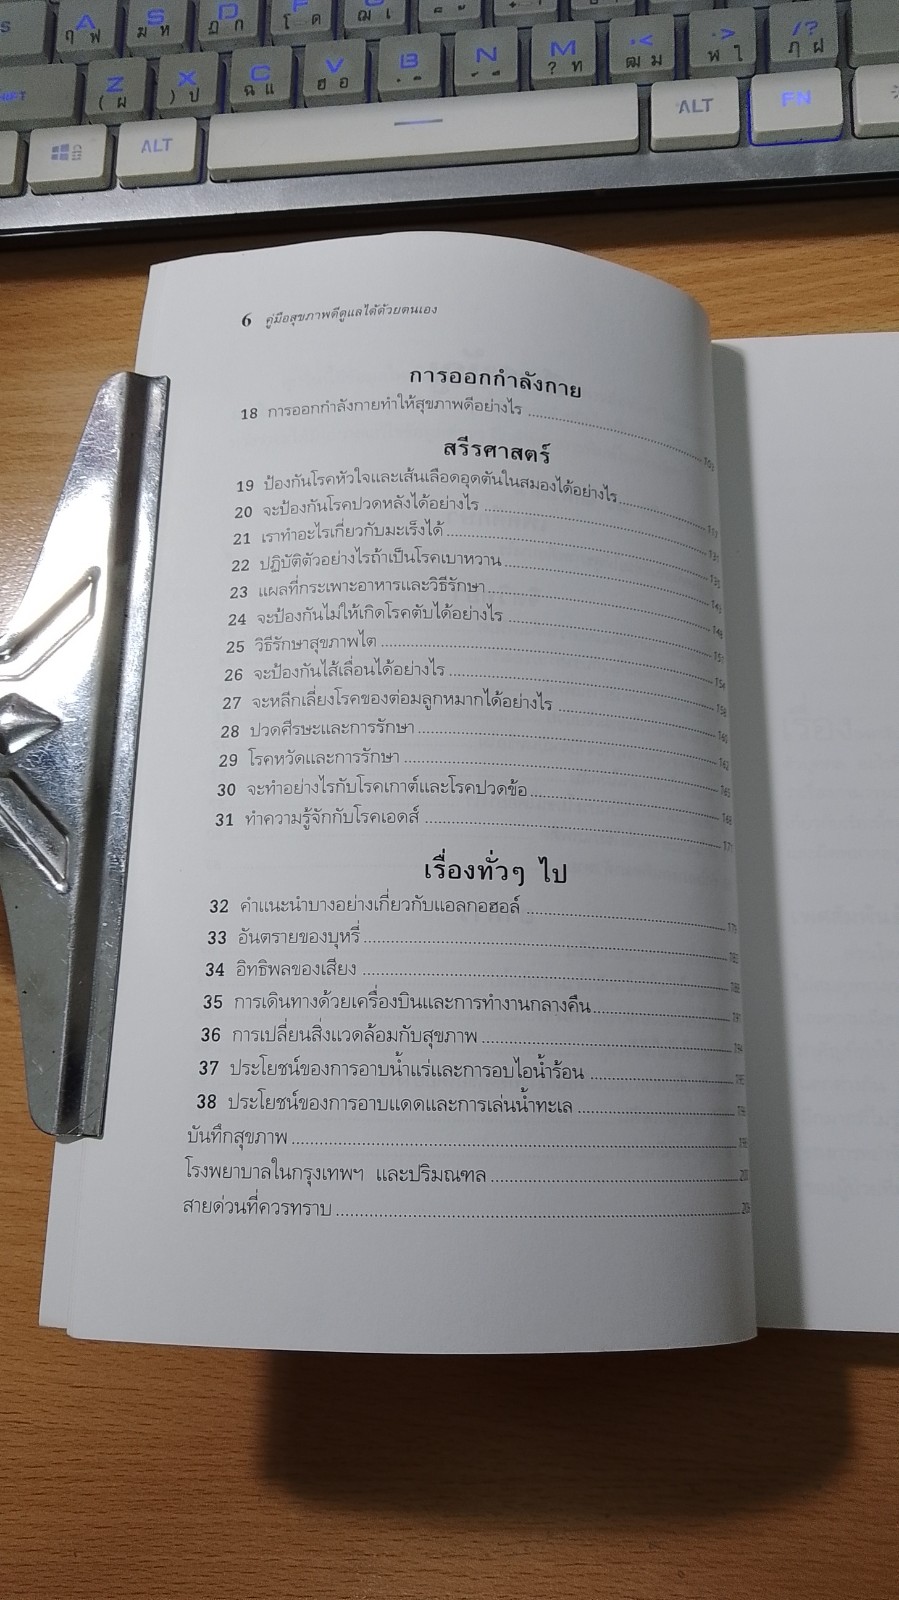 A S D
ๅ ฟ ฆ ห ฏ ก โ ค ฌ เ
Z X C V B N M < > /?
( ผ ) ป ฉ แ ฮ อ ? ท ฒ ม พ ใ ฦ ฝ
ALT ALT FN
6 คู่มือสุขภาพดีดูแลได้ด้วยตนเอง
การออกกำลังกาย
18 การออกกำลังกายทำให้สุขภาพดีอย่างไร
สรีรศาสตร์
19 ป้องกันโรคหัวใจและเส้นเลือดอุดตันในสมองได้อย่างไร
20 จะป้องกันโรคปวดหลังได้อย่างไร
21 เราทำอะไรเกี่ยวกับมะเร็งได้
22 ปฏิบัติตัวอย่างไรถ้าเป็นโรคเบาหวาน
23 แผลที่กระเพาะอาหารและวิธีรักษา
24 จะป้องกันไม่ให้เกิดโรคตับได้อย่างไร
25 วิธีรักษาสุขภาพไต
26 จะป้องกันไส้เลื่อนได้อย่างไร
27 จะหลีกเลี่ยงโรคของต่อมลูกหมากได้อย่างไร
28 ปวดศีรษะและการรักษา
29 โรคหวัดและการรักษา
30 จะทำอย่างไรกับโรคเกาต์และโรคปวดข้อ
31 ทำความรู้จักกับโรคเอดส์
เรื่องทั่วๆ ไป
32 คำแนะนำบางอย่างเกี่ยวกับแอลกอฮอล์
33 อันตรายของบุหรี่
34 อิทธิพลของเสียง
35 การเดินทางด้วยเครื่องบินและการทำงานกลางคืน
36 การเปลี่ยนสิ่งแวดล้อมกับสุขภาพ
37 ประโยชน์ของการอาบน้ำแร่และการอบไอน้ำร้อน
38 ประโยชน์ของการอาบแดดและการเล่นน้ำทะเล
บันทึกสุขภาพ
โรงพยาบาลในกรุงเทพฯ และปริมณฑล
สายด่วนที่ควรทราบ